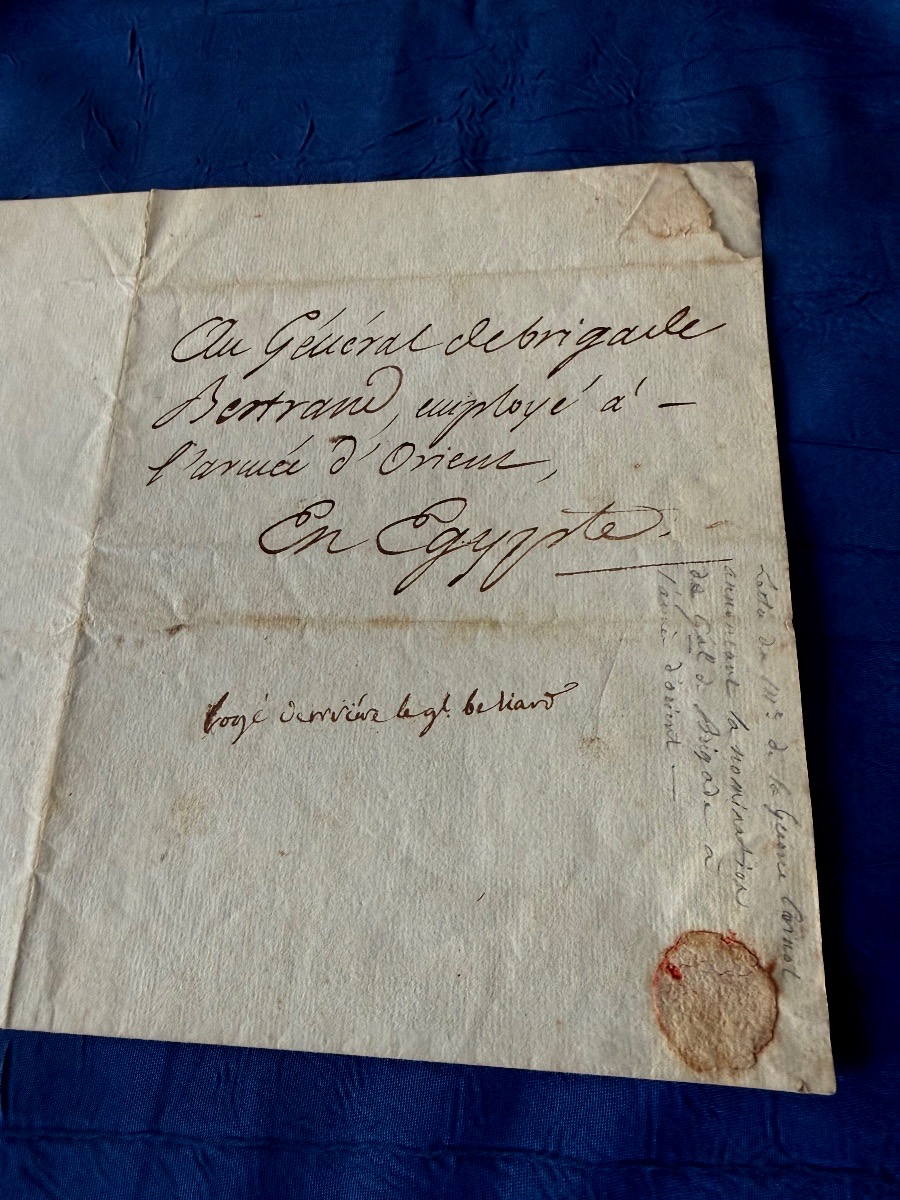 Au Général de brigade
Bertrand, employé à –
l'armée d'Orient,
En Egypte.
logé derrière le gl. beliard
Lettre du Mre de la Guerre Carnot
annoncant la nomination
de Gal de Brigade a
l'armée d'orient —